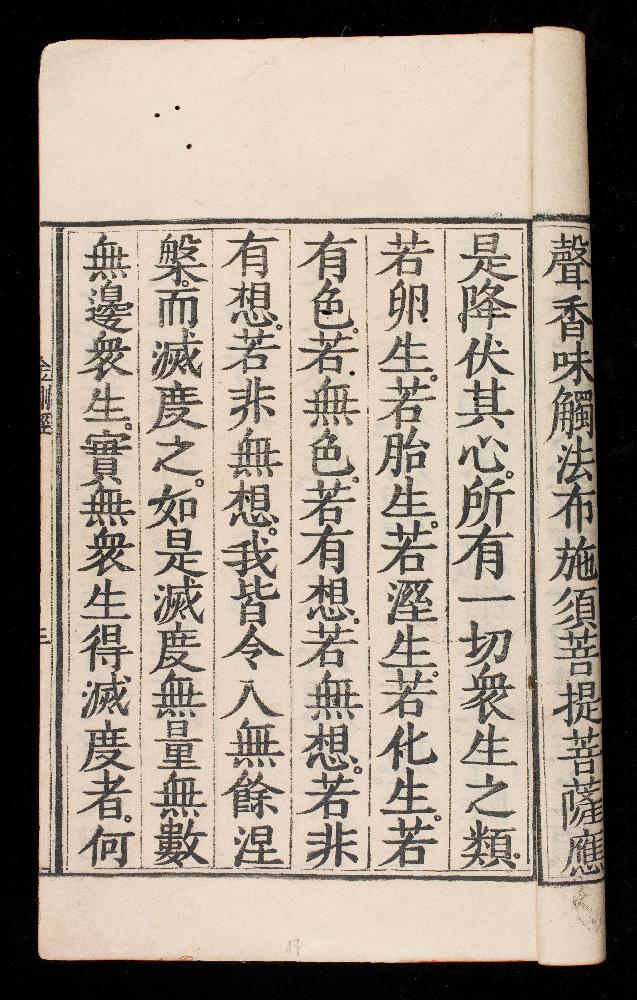 聲香味觸法布施須菩提菩薩應
是降伏其心。所有一切衆生之類。
若卵生。若胎生。若溼生。若化生。若
有色。若無色。若有想。若無想。若非
有想。若非無想。我皆令入無餘涅
槃。而滅度之。如是滅度無量無數
無邊衆生。實無衆生得滅度者。何
金剛經
三
17